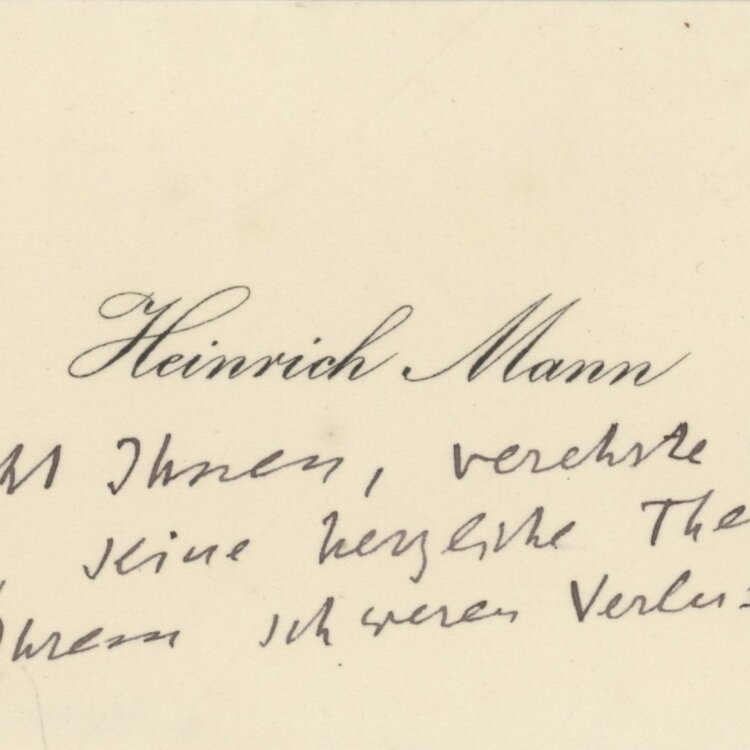 Heinrich Mann
Ihnen, verehrte
seine herzliche The
Ihrem schweren Verlus